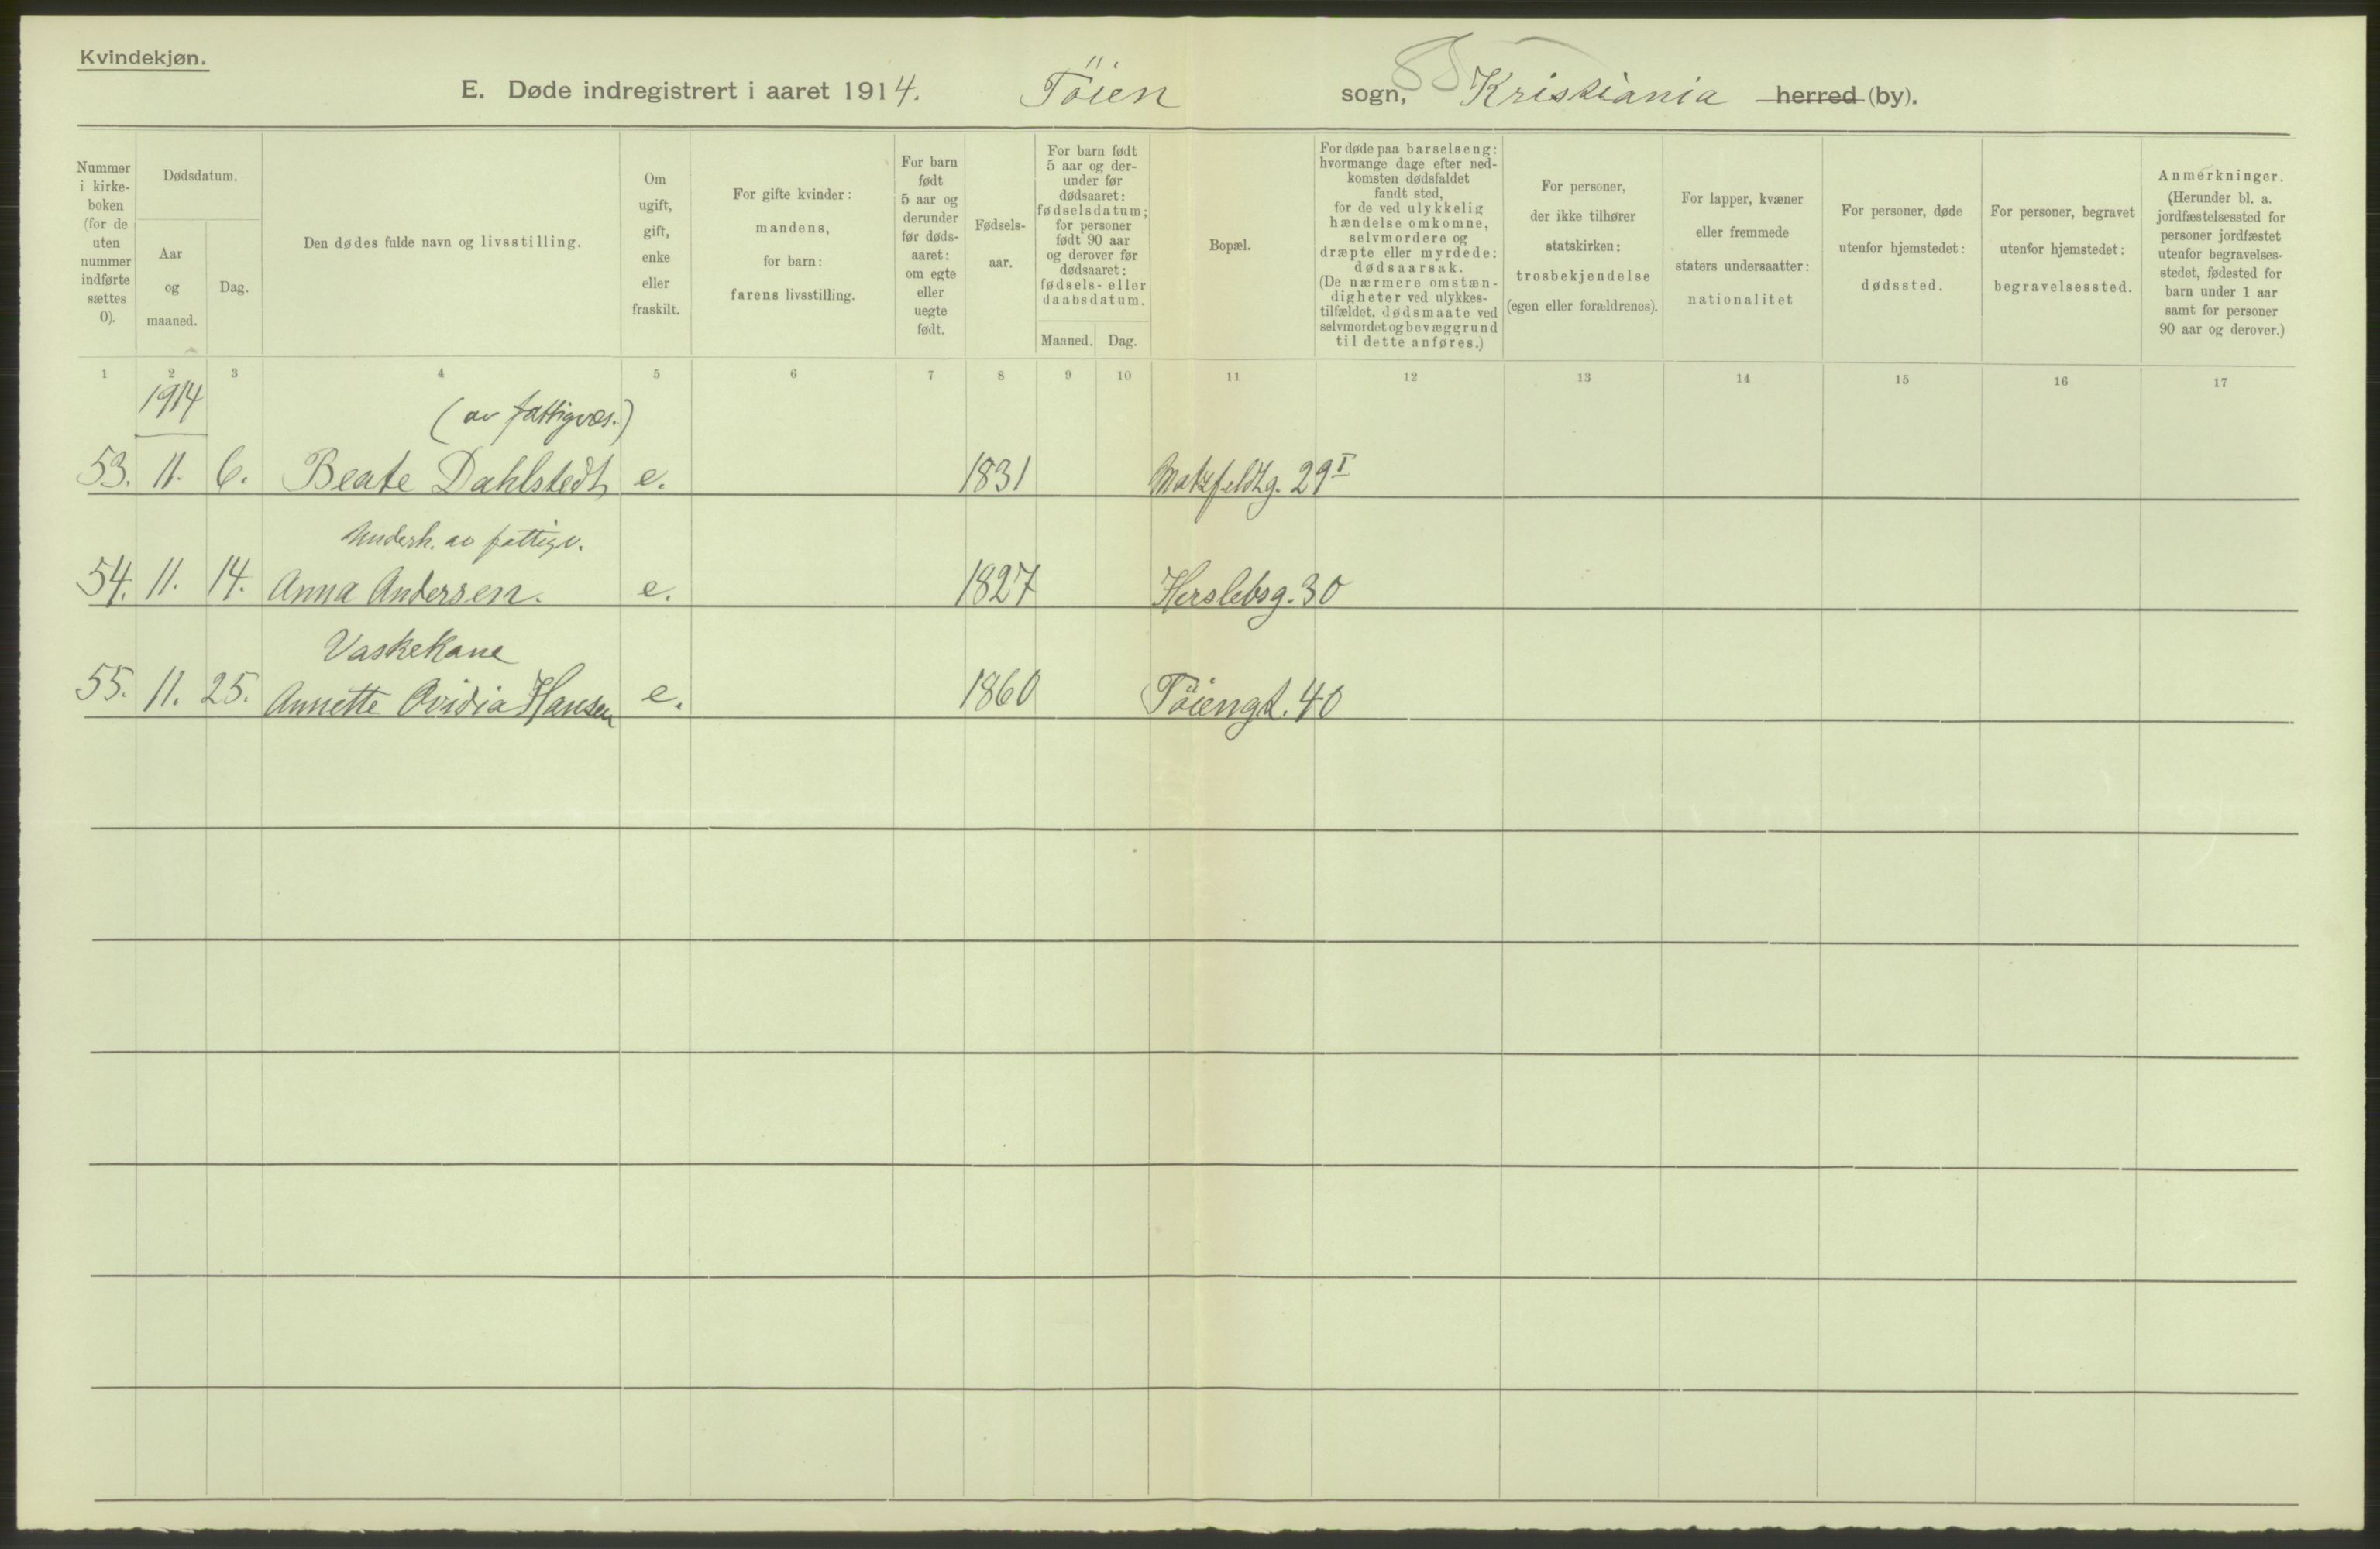 Kvindekjøn.
E. Døde indregistrert i aaret 1914. Töien sogn, Kristiania herred (by).
Nummer i kirke-boken (for de uten nummer indførte sættes 0).
Dødsdatum.
Aar og maaned.
Dag.
Den dødes fulde navn og livsstilling.
Om ugift, gift, enke eller fraskilt.
For gifte kvinder: mandens, for barn: farens livsstilling.
For barn født 5 aar og derunder før døds-aaret: om egte eller uegte født.
Fødsels-aar.
For barn født 5 aar og der-under før dødsaaret: fødselsdatum; for personer født 90 aar og derover før dødsaaret: fødsels- eller daabsdatum.
Maaned. Dag.
Bopæl.
For døde paa barselseng: hvormange dage efter ned-komsten dødsfaldet fandt sted, for de ved ulykkelig hændelse omkomne, selvmordere og dræpte eller myrdede: dødsaarsak. (De nærmere omstæn-digheter ved ulykkes-tilfældet, dødsmaate ved selvmordet og bevæggrund til dette anføres.)
For personer, der ikke tilhører statskirken: trosbekjendelse (egen eller forældrenes).
For lapper, kvæner eller fremmede staters undersaatter: nationalitet
For personer, døde utenfor hjemstedet: dødssted.
For personer, begravet utenfor hjemstedet: begravelsessted.
Anmerkninger. (Herunder bl. a. jordfæstelsessted for personer jordfæstet utenfor begravelses-stedet, fødested for barn under 1 aar samt for personer 90 aar og derover.)
1 2 3 4 5 6 7 8 9 10 11 12 13 14 15 16 17
1914
(av fattigvæs.)
53. 11. 6. Beate Dahlstedt e. 1831 Motzfeldtg. 29 I
Underh. av fattigv.
54. 11. 14. Anna Andersen. e. 1827 Herslebsg. 30
Vaskekone
55. 11. 25. Annette Ovidia Hansen e. 1860 Töiengt. 40